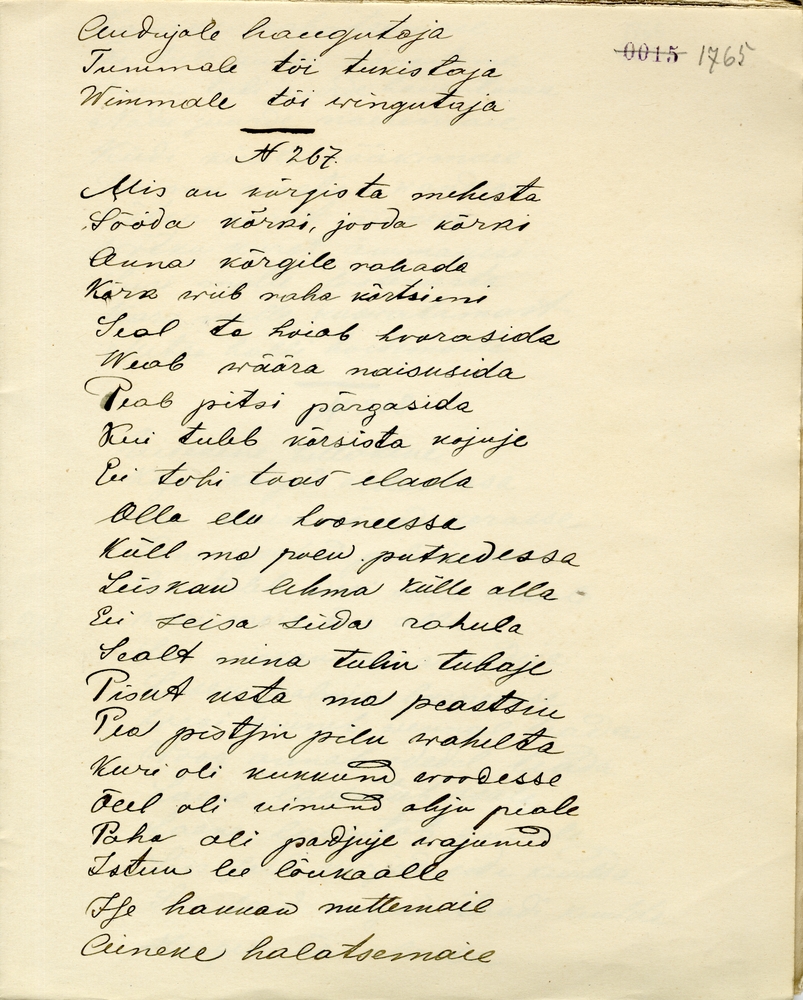 Andijale haugutaja
Tummale tõi tukistaja
Wimmale tõi wingutaja
0015 1765
N 267.
Mis on kõrgista mehesta
Sööda kõrki, jooda kõrki
Anna kõrgile rahada
Kõrk wiib raha kõrtsieni
Seal ta hoiab hoorasida
Weab wäära naisusida
Peab pitsi pärgasida
Kui tuleb kõrsista kojuje
Ei tohi toas elada
Olla elu hooneessa
Küll ma poen putkedessa
Leiskan lehma külle alla
Ei seisa siida rahula
Sealt mina tulin tubaje
Pisut usta ma peastsin
Pea pistsin pilu wahelta
Kuri oli kukkund woodesse
Õeel oli uinund ahju peale
Paha oli padjuje wajunud
Istun lee lõukaalle
Ise hakkan nuttemaie
Aineke halatsemaie